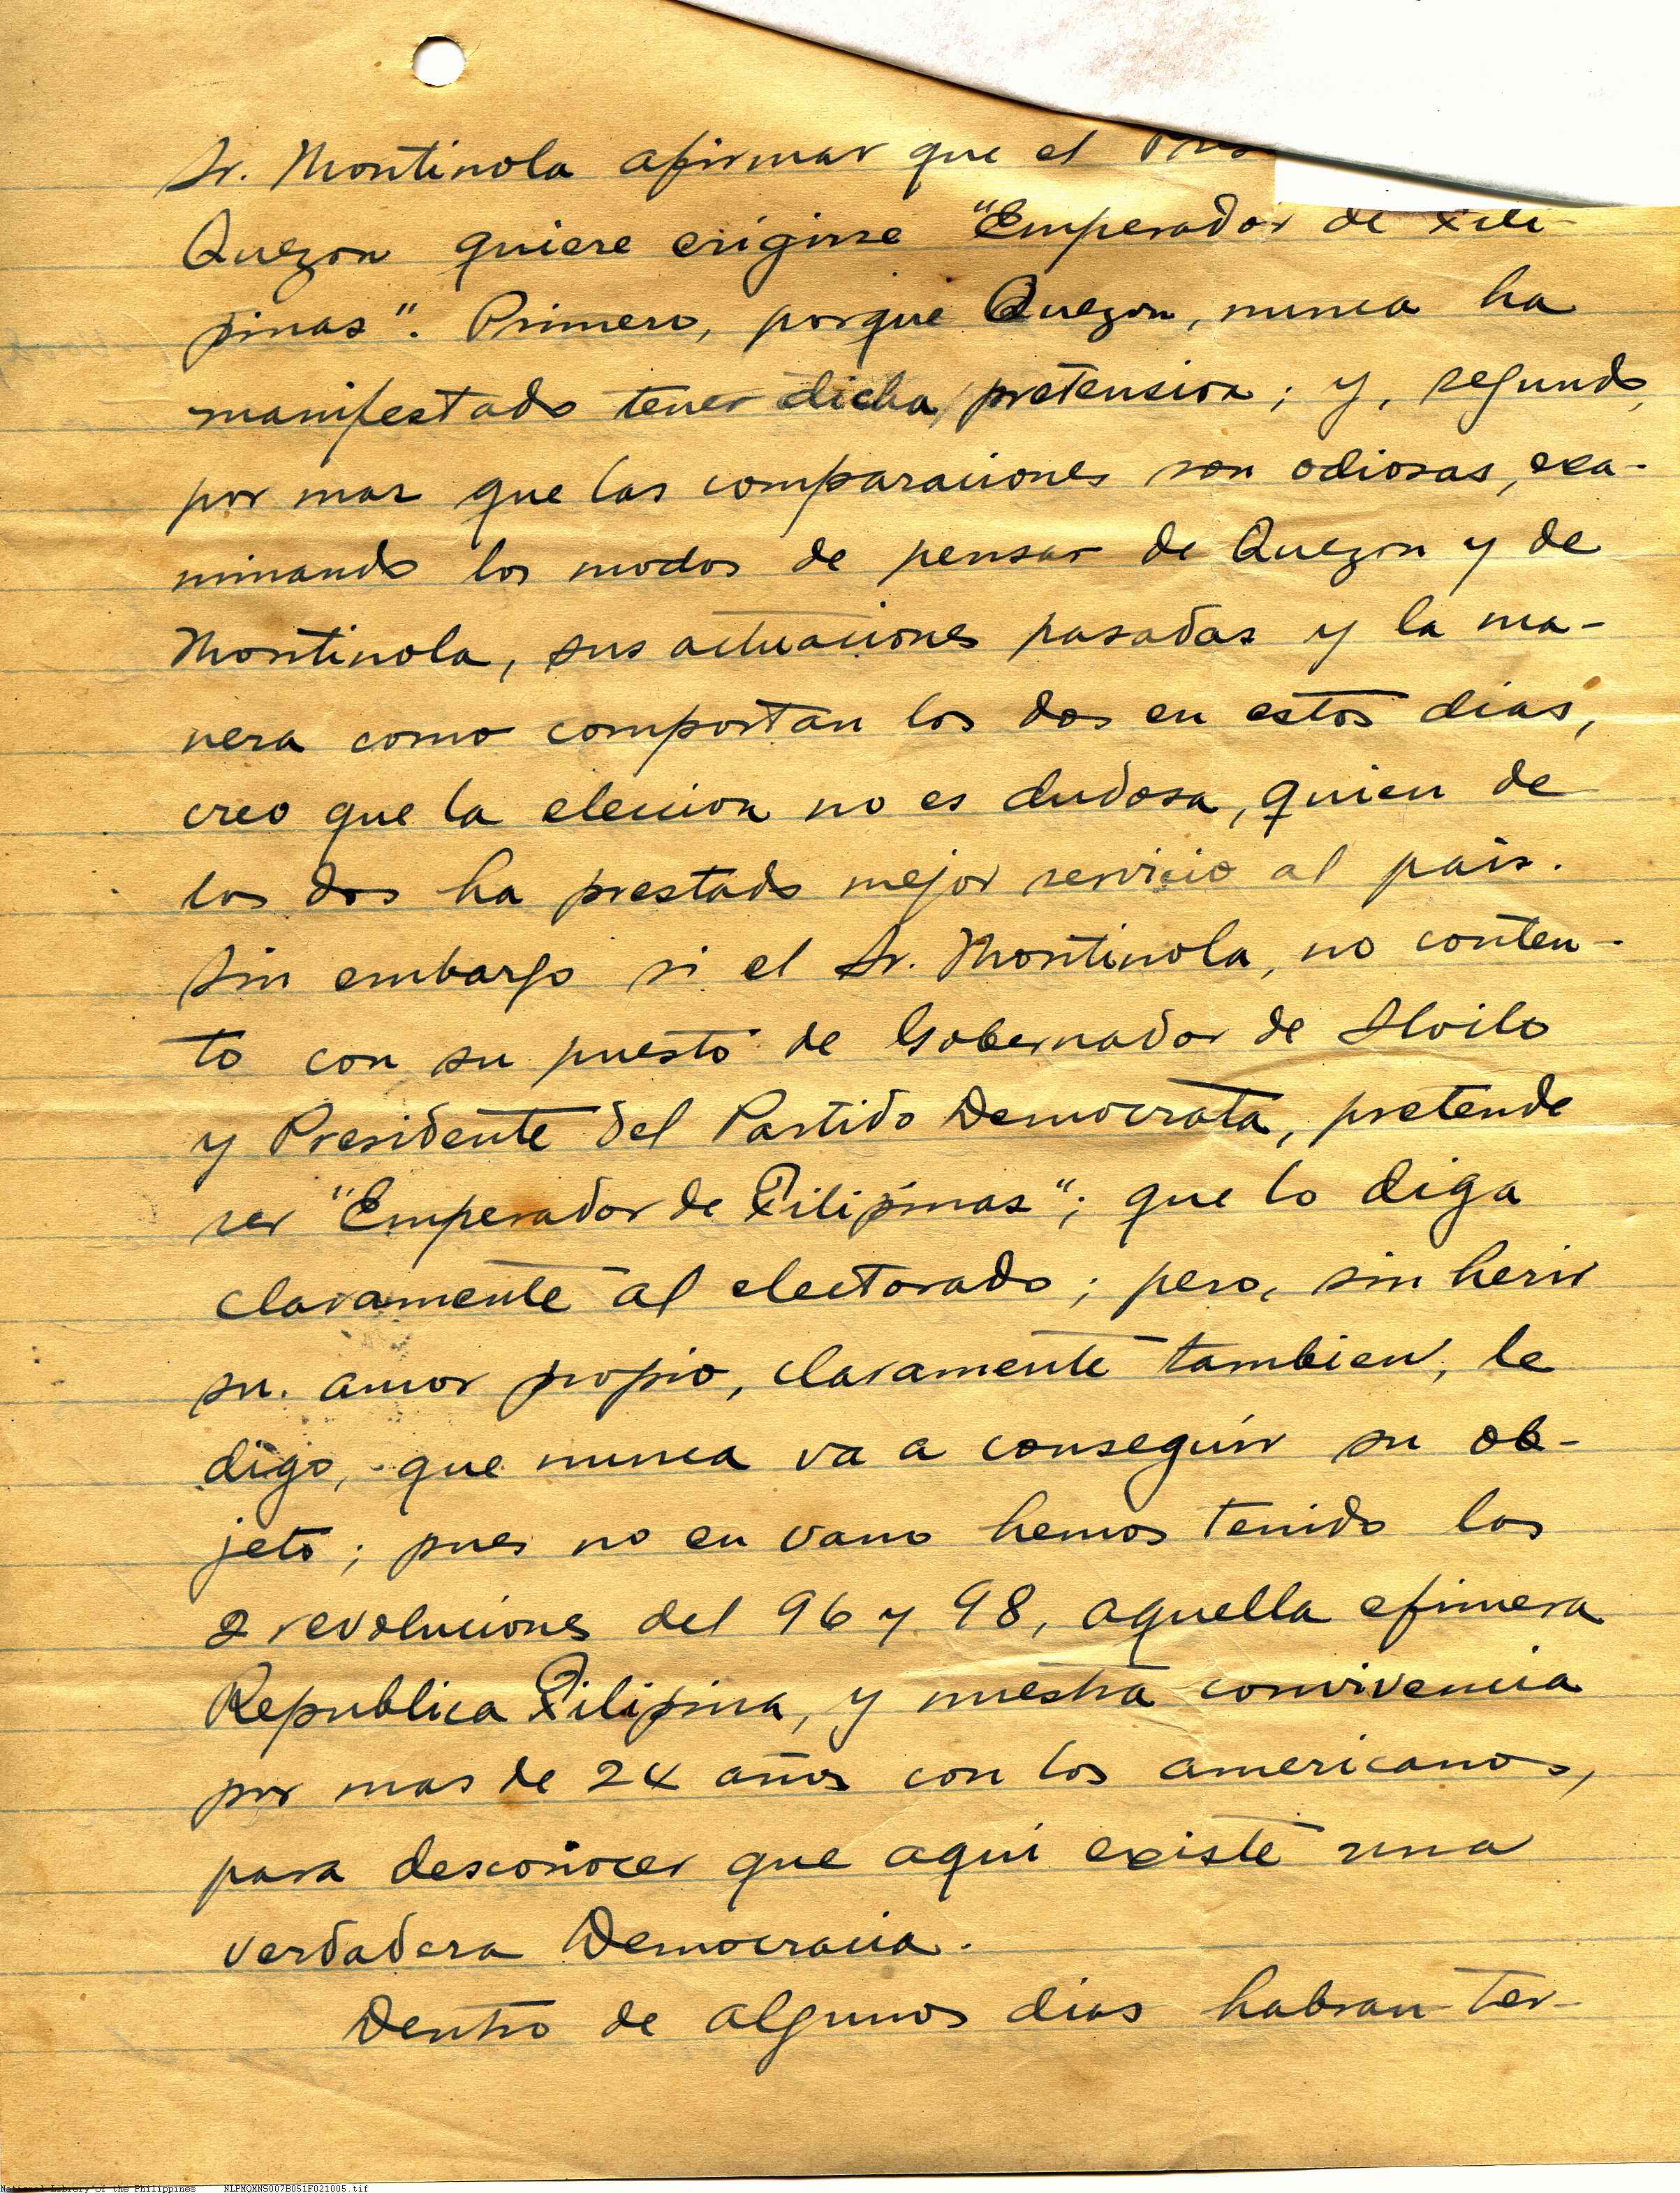 Sr. Montinola afirmar que el Pres
Quezon quiere erigirse "Emperador de Fili-
pinas". Primero, porque Quezon, nunca ha
manifestado tener dicha pretension; y, segundo,
por mas que las comparaciones son odiosas, exa-
minando los modos de pensar de Quezon y de
Montinola, sus actuaciones pasadas y la ma-
nera como comportan los dos en estos dias,
creo que la eleccion no es dudosa, quien de
los dos ha prestado mejor servicio al pais.
Sin embargo si el Sr. Montinola, no conten-
to con su puesto de Gobernador de Iloilo
y Presidente del Partido Democrata, pretende
ser "Emperador de Filipinas"; que lo diga
claramente al electorado; pero, sin herir
su amor propio, claramente tambien, le
digo, que nunca va a conseguir su ob-
jeto; pues no en vano hemos tenido las
2 revoluciones del 96 y 98, aquella efimera
Republica Filipina, y nuestra convivencia
por mas de 24 años con los americanos,
para desconocer que aqui existe una
verdadera Democracia.
Dentro de algunos dias habran ter-
National Library of the Philippines NLPMQMNS007B051F021005.tif